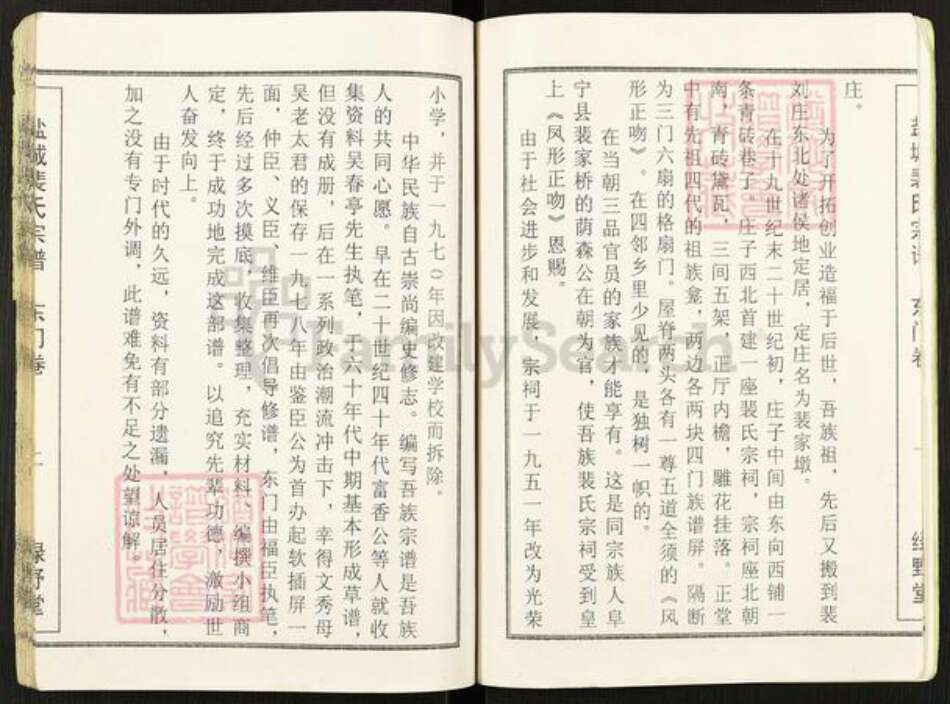 庄。
为了开拓创业造福于后世，吾族祖，先后又搬到裴
刘庄东北处诸侯地定居，定庄名为裴家墩。
在十九世纪末二十世纪初，庄子中间由东向西铺一
条青砖巷子，庄子西北首建一座裴氏宗祠，宗祠座北朝
南，青砖黛瓦，三间五架，正厅内檐，雕花挂落。正堂
中有先祖四代的祖族龛，两边各两块四门族谱屏。隔断
为三门六扇的格扇门。屋脊两头各有一尊五道全须的《风
形正吻》。在四邻乡里少见的，是独树一帜的。
在当朝三品官员的家族才能享有。这是同宗族人阜
宁县裴家桥的荫森公在朝为官，使吾族裴氏宗祠受到皇
上《凤形正吻》恩赐。
由于社会进步和发展，宗祠于一九五一年改为光荣
盐城裴氏宗谱
东门卷
一
绿野堂
小学，并于一九七〇年因改建学校而拆除。
中华民族自古崇尚编史修志。编写吾族宗谱是吾族
人的共同心愿。早在二十世纪四十年代富香公等人就收
集资料吴春亭先生执笔，于六十年代中期基本形成草谱，
但没有成册，后在一系列政治潮流冲击下，幸得文秀母
吴老太君的保存一九七八年由鉴臣公为首办起软插屏一
面，仲臣、义臣、维臣再次倡导修谱，东门由福臣执笔，
先后经过多次摸底，收集整理，充实材料、编撰小组商
定，终于成功地完成这部谱。以追究先辈功德，激励世
人奋发向上。
由于时代的久远，资料有部分遗漏，人员居住分散，
加之没有专门外调，此谱难免有不足之处望谅解。
盐城裴氏宗谱
东门卷
二
绿野堂
FamilySearch